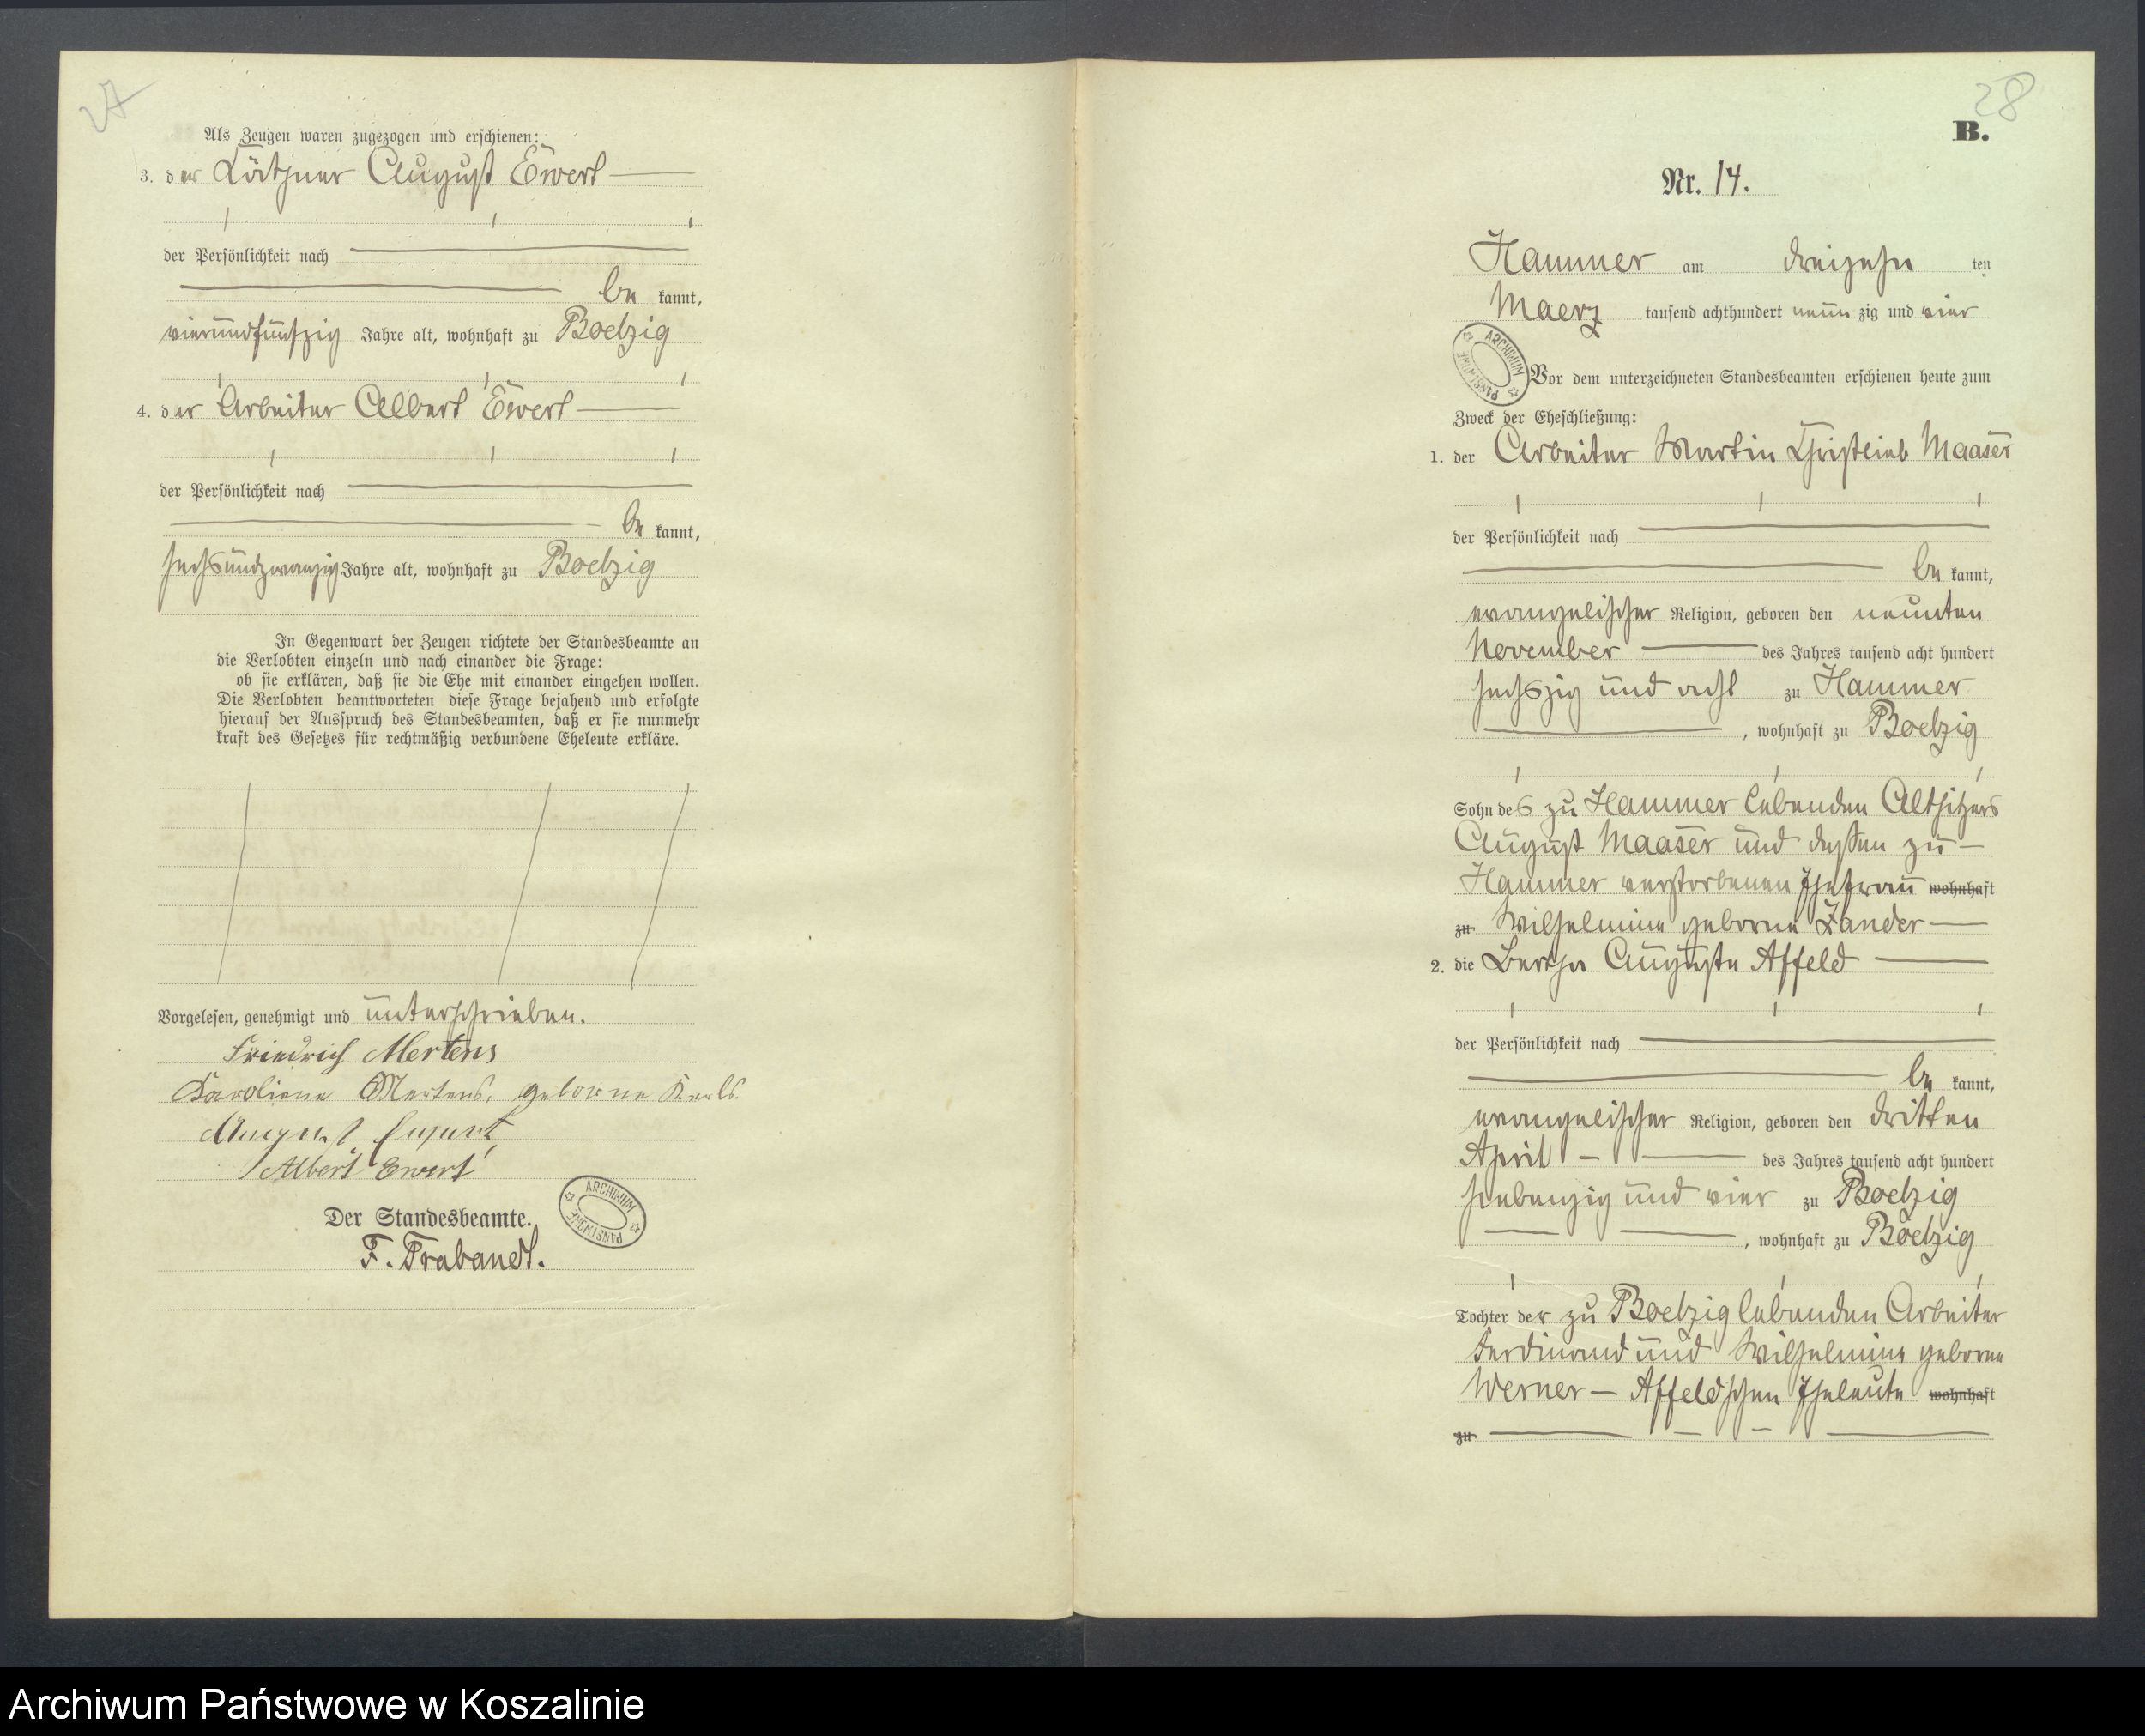 27
Als Zeugen waren zugezogen und erschienen:
3. der Käthner August Ewert
der Persönlichkeit nach
be kannt,
vierundfünfzig Jahre alt, wohnhaft zu Boetzig
4. der Arbeiter Albert Ewert
der Persönlichkeit nach
be kannt,
sechsundzwanzig Jahre alt, wohnhaft zu Boetzig
In Gegenwart der Zeugen richtete der Standesbeamte an
die Verlobten einzeln und nach einander die Frage:
ob sie erklären, daß sie die Ehe mit einander eingehen wollen.
Die Verlobten beantworteten diese Frage bejahend und erfolgte
hierauf der Ausspruch des Standesbeamten, daß er sie nunmehr
kraft des Gesetzes für rechtmäßig verbundene Eheleute erkläre.
Vorgelesen, genehmigt und unterschrieben.
Friedrich Mertens
Karoline Mertens, geborne
August Ewert
Albert Ewert
ARCHIWUM PAŃSTWOWE
Der Standesbeamte.
F. Trabandt.
28
B.
Nr. 14.
Hammer am dreizehn ten
Maerz tausend achthundert neun zig und vier
ARCHIWUM PAŃSTWOWE
Vor dem unterzeichneten Standesbeamten erschienen heute zum
Zweck der Eheschließung:
1. der Arbeiter Martin Christlieb Maaser
der Persönlichkeit nach
be kannt,
evangelischer Religion, geboren den neunten
November des Jahres tausend acht hundert
sechszig und acht zu Hammer
, wohnhaft zu Boetzig
Sohn des zu Hammer lebenden Altsitzers
August Maaser und dessen zu
Hammer verstorbenen Ehefrau wohnhaft
zu Wilhelmine geborne Zander
2. die Bertha Auguste Affeld
der Persönlichkeit nach
be kannt,
evangelischer Religion, geboren den dritten
April des Jahres tausend acht hundert
siebenzig und vier zu Boetzig
, wohnhaft zu Boetzig
Tochter der zu Boetzig lebenden Arbeiter
Ferdinand und Wilhelmine geborne
Werner – Affeldschen Eheleute wohnhaft
zu
Archiwum Państwowe w Koszalinie